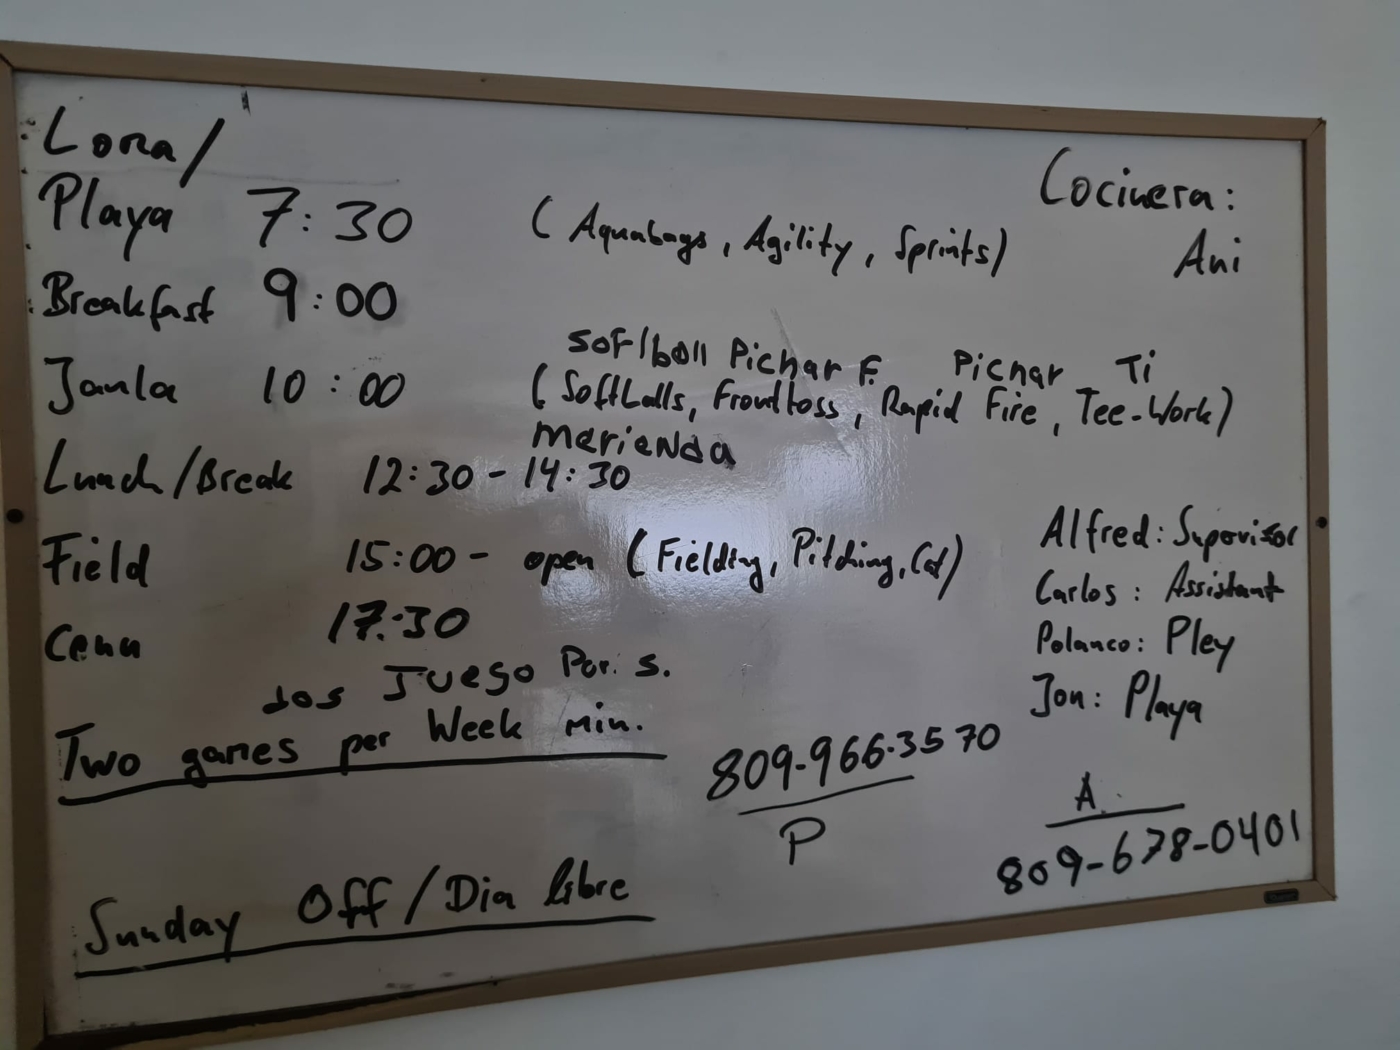 Lona/
Playa 7:30 (Aquabags, Agility, Sprints)
Breakfast 9:00
softball Pichar F. Pichar Ti
Jaula 10:00 (Softballs, Fronttoss, Rapid Fire, Tee-Work)
merienda
Lunch/Break 12:30-14:30
Field 15:00- open (Fielding, Pitching, Cat)
Cena 17:30
dos Juego Por. s.
Two games per Week min.
Sunday Off/Dia libre
Cocinera:
Ani
Alfred: Supervisor
Carlos: Assistant
Polanco: Pley
Jon: Playa
809-966-3570
P
A.
809-678-0401